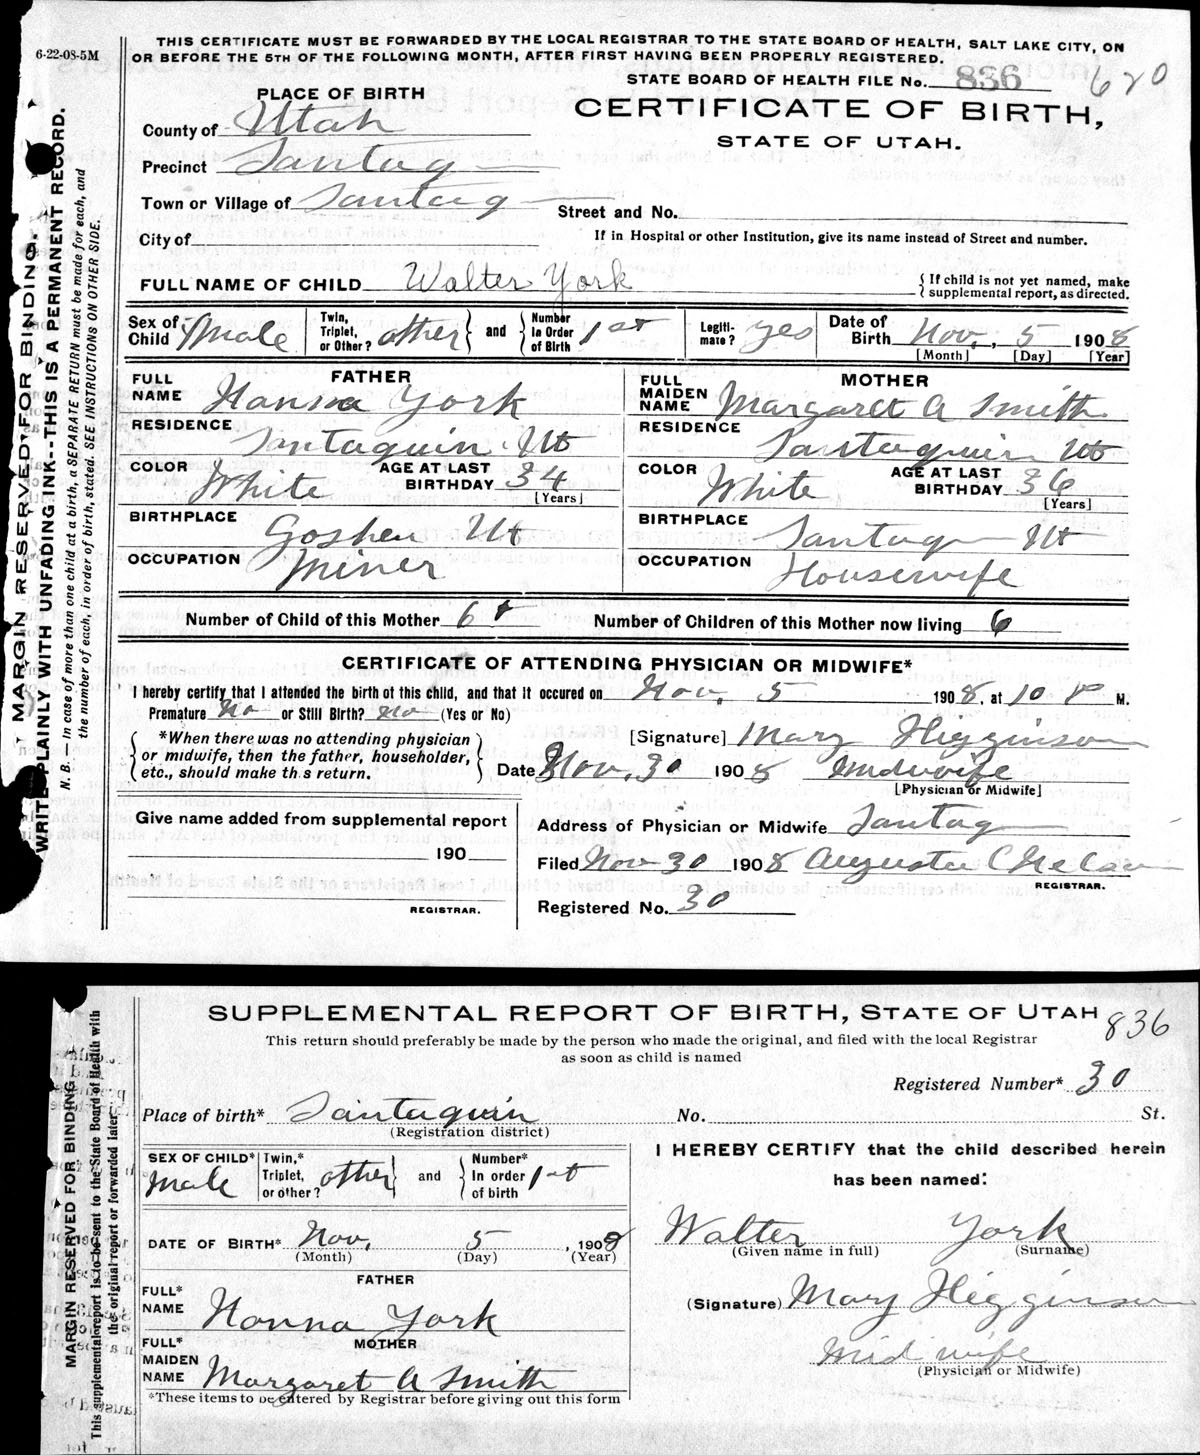 6-22-08-5M
THIS CERTIFICATE MUST BE FORWARDED BY THE LOCAL REGISTRAR TO THE STATE BOARD OF HEALTH, SALT LAKE CITY, ON
OR BEFORE THE 5TH OF THE FOLLOWING MONTH, AFTER FIRST HAVING BEEN PROPERLY REGISTERED.
STATE BOARD OF HEALTH FILE No. 836 620
CERTIFICATE OF BIRTH,
STATE OF UTAH.
PLACE OF BIRTH
County of Utah
Precinct Santaq
Town or Village of Santaq
Street and No.
City of
If in Hospital or other Institution, give its name instead of Street and number.
FULL NAME OF CHILD Walter York { If child is not yet named, make supplemental report, as directed.
Sex of Child Male Twin, Triplet, or Other? other } and { Number In Order of Birth 1st Legiti-mate? yes Date of Birth Nov. 5 1908
[Month] [Day] [Year]
FATHER
FULL NAME Hanna York
RESIDENCE Santaquin Ut
COLOR White AGE AT LAST BIRTHDAY 34 [Years]
BIRTHPLACE Goshen Ut
OCCUPATION Miner
MOTHER
FULL MAIDEN NAME Margaret A Smith
RESIDENCE Santaquin Ut
COLOR White AGE AT LAST BIRTHDAY 36 [Years]
BIRTHPLACE Santaq Ut
OCCUPATION Housewife
Number of Child of this Mother 6 Number of Children of this Mother now living 6
CERTIFICATE OF ATTENDING PHYSICIAN OR MIDWIFE*
I hereby certify that I attended the birth of this child, and that it occured on Nov. 5 1908, at 10 P M.
Premature No or Still Birth? No (Yes or No)
{ *When there was no attending physician
or midwife, then the father, householder,
etc., should make this return. }
[Signature] Mary Higginson
Date Nov. 30 1908 Midwife
[Physician or Midwife]
Give name added from supplemental report
190
REGISTRAR.
Address of Physician or Midwife Santaq
Filed Nov 30 1908 Augusta C
REGISTRAR.
Registered No. 30
MARGIN RESERVED FOR BINDING.
WRITE PLAINLY WITH UNFADING INK--THIS IS A PERMANENT RECORD.
N. B.—In case of more than one child at a birth, a SEPARATE RETURN must be made for each, and
the number of each, in order of birth, stated. SEE INSTRUCTIONS ON OTHER SIDE.
SUPPLEMENTAL REPORT OF BIRTH, STATE OF UTAH 836
This return should preferably be made by the person who made the original, and filed with the local Registrar
as soon as child is named
Registered Number* 30
Place of birth* Santaquin No. St.
(Registration district)
SEX OF CHILD* Male Twin,* Triplet, or other? other } and { Number* In order of birth 1st
DATE OF BIRTH* Nov. 5, 1908
(Month) (Day) (Year)
FATHER
FULL* NAME Hanna York
MOTHER
FULL* MAIDEN NAME Margaret A Smith
*These items to be entered by Registrar before giving out this form
I HEREBY CERTIFY that the child described herein
has been named:
Walter York
(Given name in full) (Surname)
(Signature) Mary Higginson
Midwife
(Physician or Midwife)
MARGIN RESERVED FOR BINDING
This supplemental report is to be sent to the State Board of Health with
the original report or forwarded later